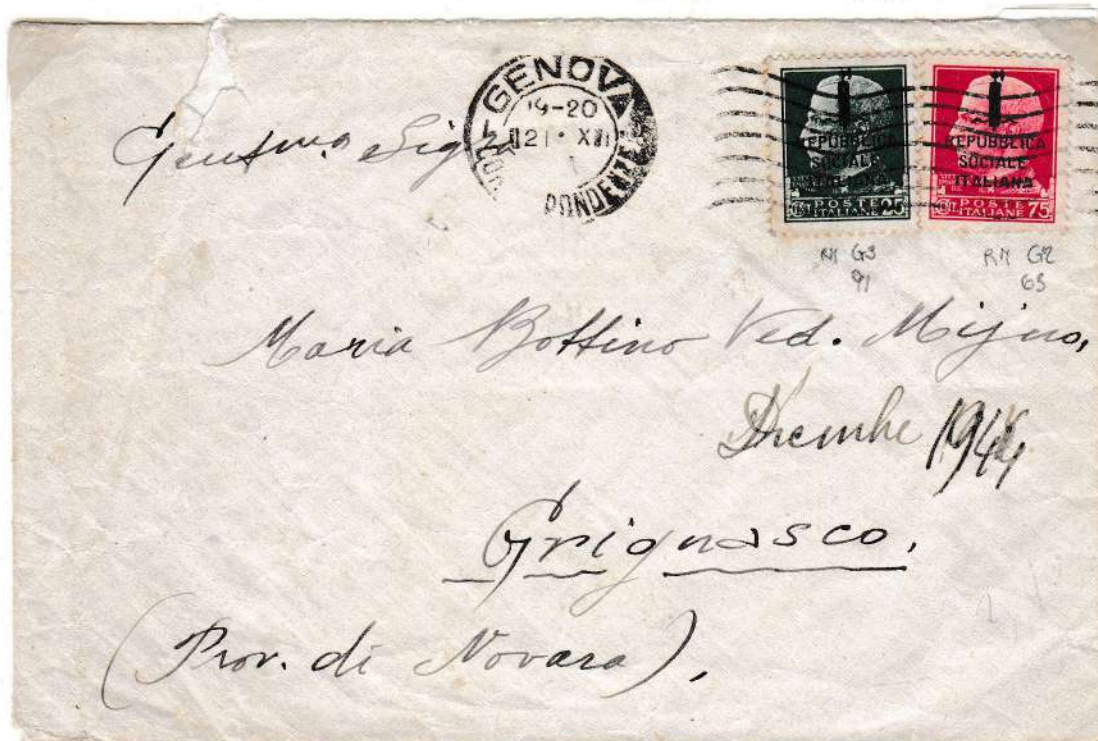 GENOVA
19-20
21 · XII
PONDENZE
REPUBBLICA
SOCIALE
ITALIANA
POSTE
ITALIANE 25
REPUBBLICA
SOCIALE
ITALIANA
POSTE
ITALIANE 75
RM G3
91
RM G2
63
Gentma Sigra
Maria Bottino Ved. Mijno,
Dicembre 1944
Grignasco,
(Prov. di Novara),